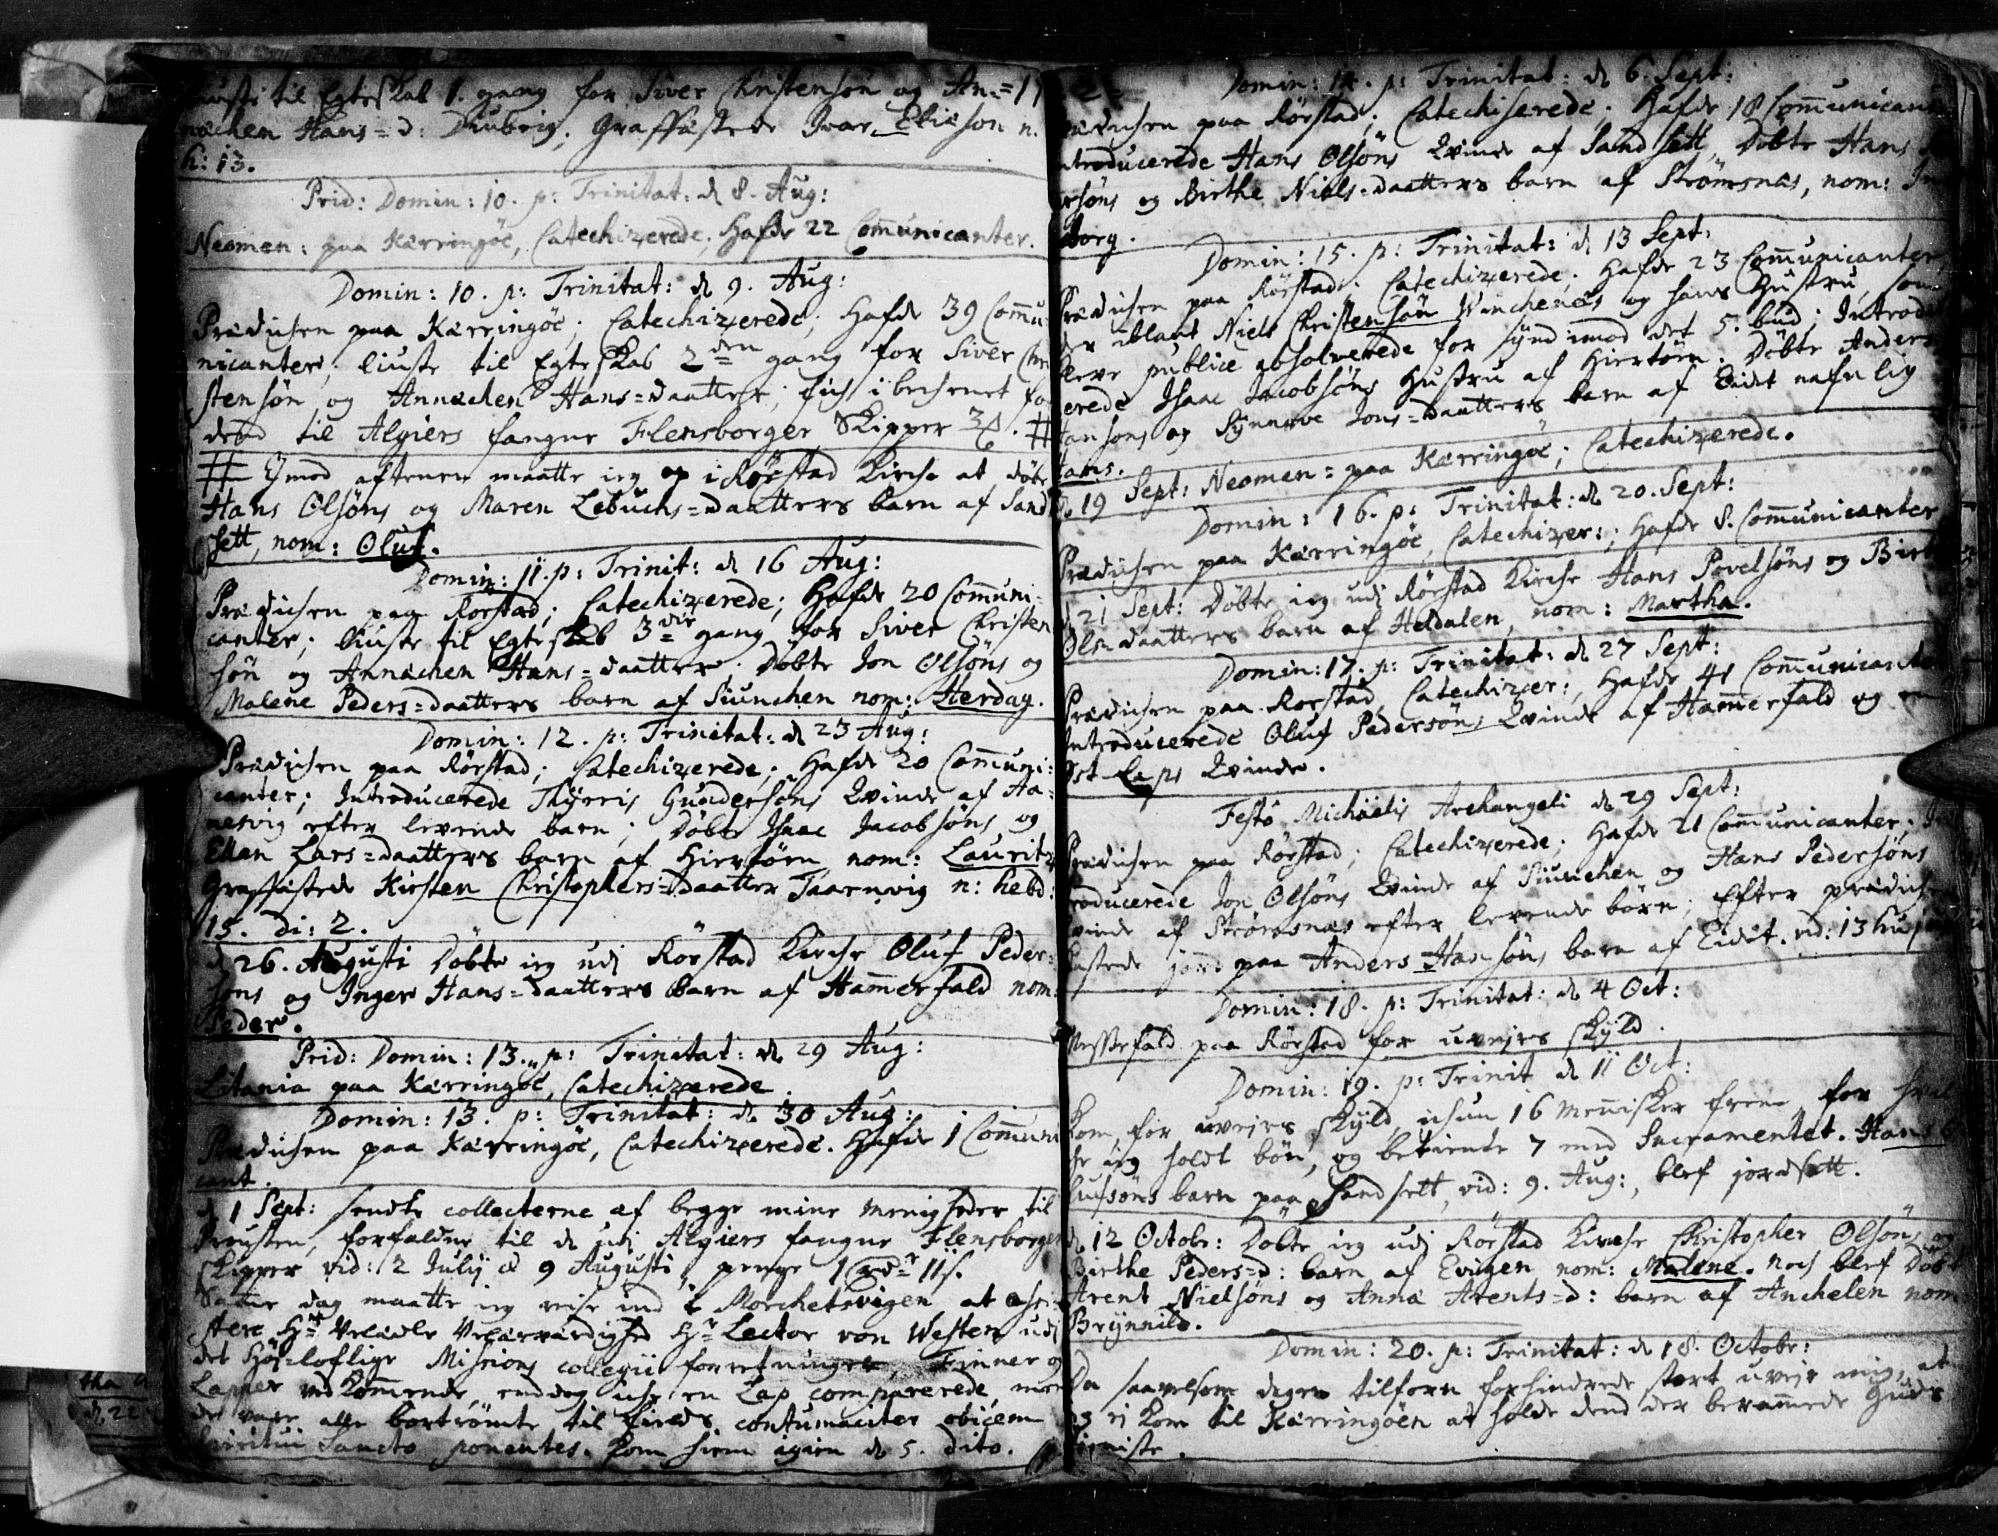 til Egteskab 1. gang for Siver Christensøn og An-
nichen Hans-d: Diubvig; Graffæstede Ivar Elieson n.
h: 13.
Prid: Domin: 10. p: Trinitat: d 8. Aug:
Neomen: paa Kærringøe, Catechizerede; Hafde 22 Communicanter.
Domin: 10. p: Trinitat: d 9. Aug:
Prædichen paa Kærringøe; Catechizerede; Hafde 39 Commu-
nicanter; liuste til Egteskab 2den gang for Siver Chri
stensøn og Annichen Hans-daatter;
til Algiers fangne Flensborger Skipper #
# Imod aftenen maatte ieg op i Rørstad Kirche at døbe
Hans Olsøns og Maren Lebuchs-daatters barn af Sand
sett, nom: Oluf.
Domin: 11. p: Trinit: d 16 Aug:
Prædichen paa Rørstad; Catechizerede; Hafde 20 Communi-
canter; liuste til Egteskab 3die gang for Siver Christen
søn og Annichen Hans-daatter. Døbte Jon Olsøns og
Malene Peders-daatters barn af Siunchen nom: Herdag.
Domin: 12. p: Trinitat: d 23 Aug:
Prædichen paa Rørstad; Catechizerede; Hafde 20 Communi-
canter; Introducerede Thyrris Gundersøns Qvinde af Ha-
nesvig efter levende barn; Døbte Isaac Jacobsøns og
Ellen Lars-daatters barn af Hiertøen nom: Lauritz
Graffæstede Kirsten Christophers-daatter Taarnvig n: hebd:
15. di: 2.
d 26. Augusti Døbte ieg udj Rørstad Kirche Oluf Peder-
søns og Inger Hans-daatters barn af Hammerfald nom:
Peder.
Prid: Domin: 13. p: Trinitat: d 29 Aug:
Litania paa Kærringøe, Catechizerede.
Domin: 13. p: Trinitat: d 30 Aug:
Prædichen paa Kærringøe, Catechizerede. Hafde 1 Communi
cant.
d 1 Sept: sendte collecterne af begge mine Menigheder til
Provsten, forfaldne til de udj Algiers fangne Flensborger
skipper vid: 2 Julij & 9 Augusti, penge 1 rdr 11 s.
Samme dag maatte ieg reise ind i Morchetsvigen, at
Hr Velædle Velærværdighed Hr Lector von Westen udj
det Høj-loflige Missions collegii forretninger, Finner og
Lapper vedkommende, endog iche en Lap comparerede, men
de vare alle bortrømte til field contumaciter obicem
Spiritui Sancto ponentes. Kom hiem igien d 5. dito.
Domin: 14. p: Trinitat: d 6. Sept:
Prædichen paa Rørstad; Catechiserede; Hafde 18 Communicant
Introducerede Hans Olsøns Qvinde af Sandsett, Døbte Hans
søns og Birthe Niels-daatters barn af Strømsnæs, nom:
borg.
Domin: 15. p: Trinitat: d 13 Sept:
Prædichen paa Rørstad; Catechizerede; Hafde 23 Communicanter
der iblant Niels Christensøn Winchenæs og hans Hustru, som
bleve publice absolverede for synd imod det 5. bud; Introdu
cerede Isaac Jacobsøns Hustru af Hiertøen; Døbte Anders
Hansøns og Synnøve Jons-daatters barn af Eidet nafnlig
Hans.
d 19 Sept: Neomen: paa Kærringøe; Catechizerede.
Domin: 16. p: Trinitat: d 20. Sept:
Prædichen paa Kærringøe, Catechizer:; Hafde 8. Communicanter
d 21 Sept: Døbte ieg udj Rørstad Kirche Hans Povelsøns og Birthe
Ols-daatters barn af Heldalen, nom: Martha.
Domin: 17. p: Trinitat: d 27 Sept:
Prædichen paa Rørstad, Catechizer:, Hafde 41 Communicanter
Introducerede Oluf Pedersøns Qvinde af Hammerfald og en
Øst-Laps Qvinde.
Festo Michaelis Archangeli d 29 Sept:
Prædichen paa Rørstad; Catechizerede; Hafde 21 Communicanter; In
troducerede Jon Olsøns Qvinde af Siunchen og Hans Pedersøns
Qvinde af Strømsnæs efter levende børn; Efter prædichen
kastede jord paa Anders Hansøns barn af Eidet. vid: 13 hujus
Domin: 18. p: Trinitat: d 4 Oct:
Messefald paa Rørstad for uvejrs skyld.
Domin: 19. p: Trinit d 11 Oct:
Kom, for uvejrs skyld, ichun 16 Mennisker frem, for
ieg holdt bøn, og betiente 7 med Sacramentet. Hans O
lufsøns barn paa Sandsett, vid: 9. Aug:, blef jordsatt.
d 12 Octobr: Døbte ieg udj Rørstad Kirche Christopher Olsøns og
Birthe Peders-d: barn af Evigen nom: Malene. Noch blef Døbt
Arent Nielsøns og Anna Arents-d: barn af Anchelen nom:
Brynnild.
Domin: 20. p: Trinitat: d 18. Octobr:
Da saavelsom dagen tilforn forhindrede stort uvejr mig, at
ieg ej kom til Kærringøen at holde dend der berammede Guds
tieniste.